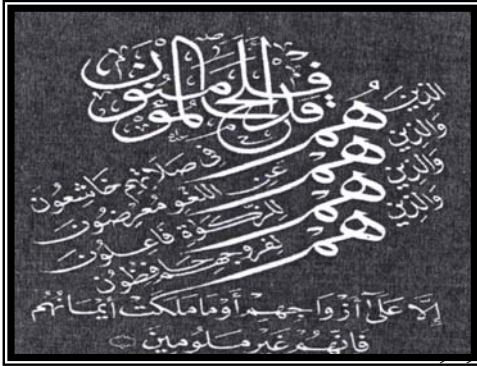 قد أفلح المؤمنون
الذين هم في صلاتهم خاشعون
والذين هم عن اللغو معرضون
والذين هم للزكوة فاعلون
والذين هم لفروجهم حافظون
إلا على أزواجهم أو ما ملكت أيمانهم
فإنهم غير ملومين